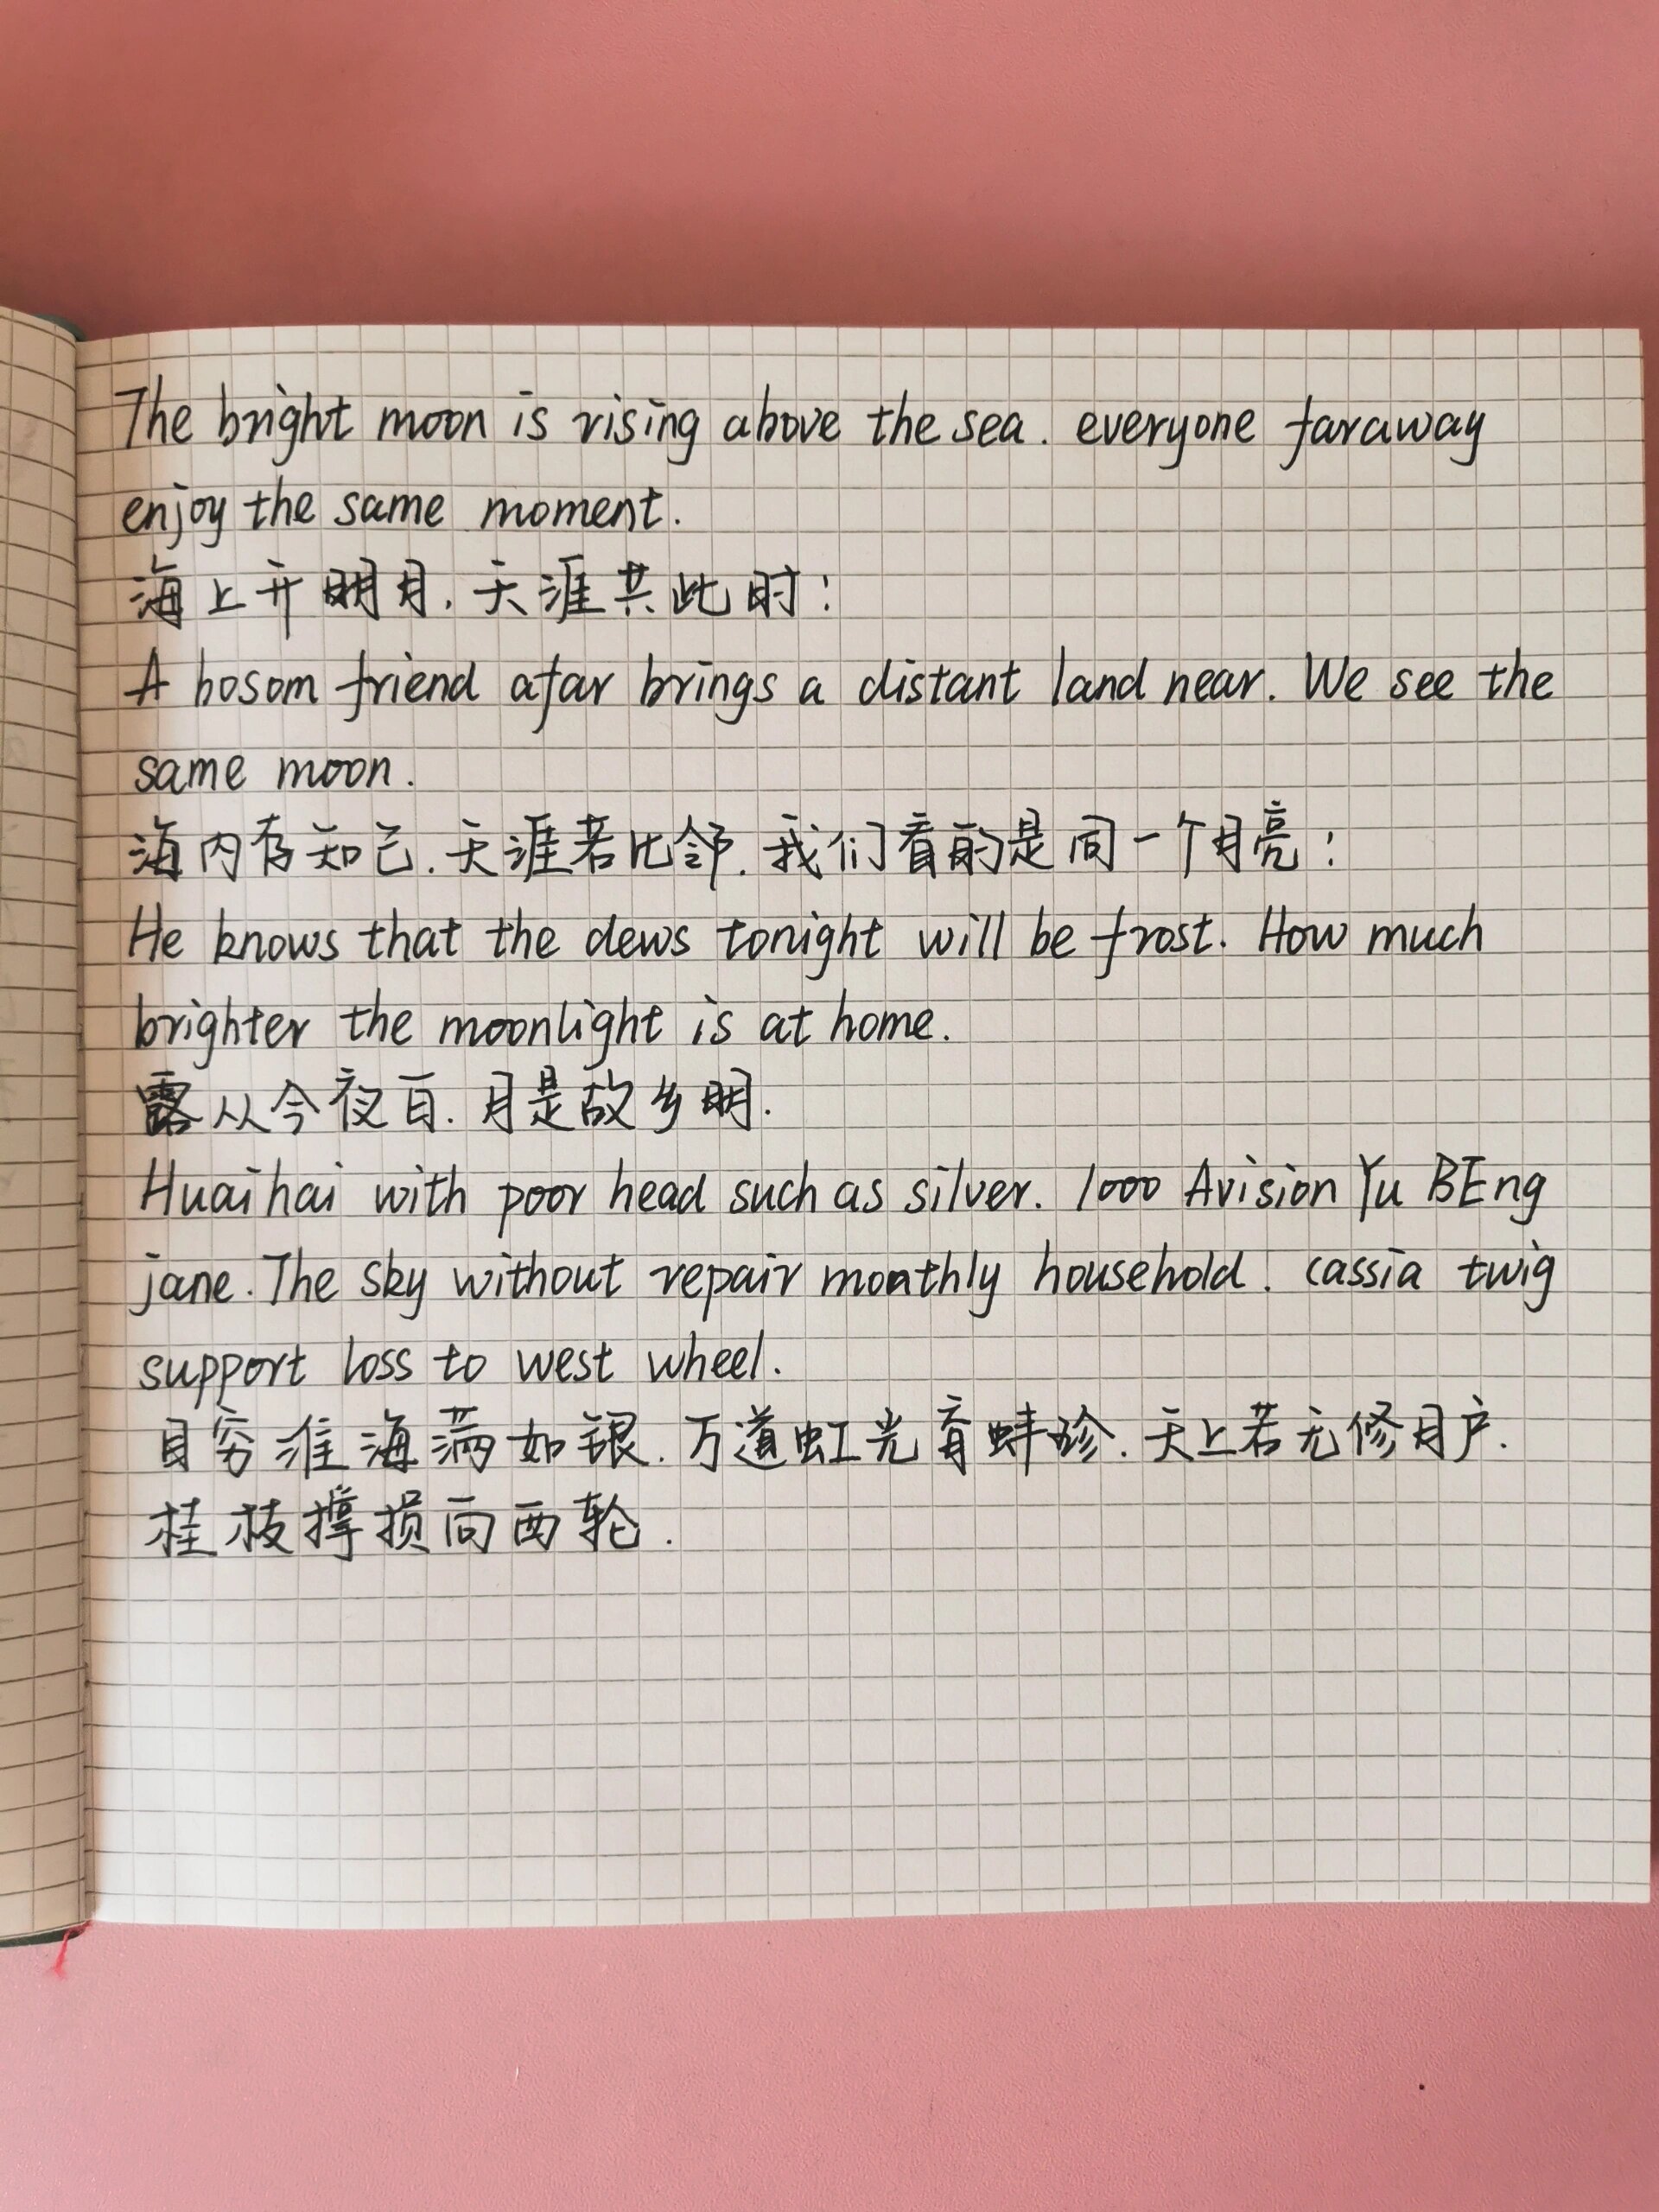 The bright moon is rising above the sea. everyone faraway
enjoy the same moment.
海上升明月.天涯共此时:
A bosom friend afar brings a distant land near. We see the
same moon.
海内存知己.天涯若比邻.我们看的是同一个月亮:
He knows that the dews tonight will be frost. How much
brighter the moonlight is at home.
露从今夜白.月是故乡明.
Huaihai with poor head such as silver. 1000 Avision Yu BEng
jane. The sky without repair monthly household. cassia twig
support loss to west wheel.
目穷淮海满如银.万道虹光育蚌珍.天上若无修月户.
桂枝撑损向西轮.